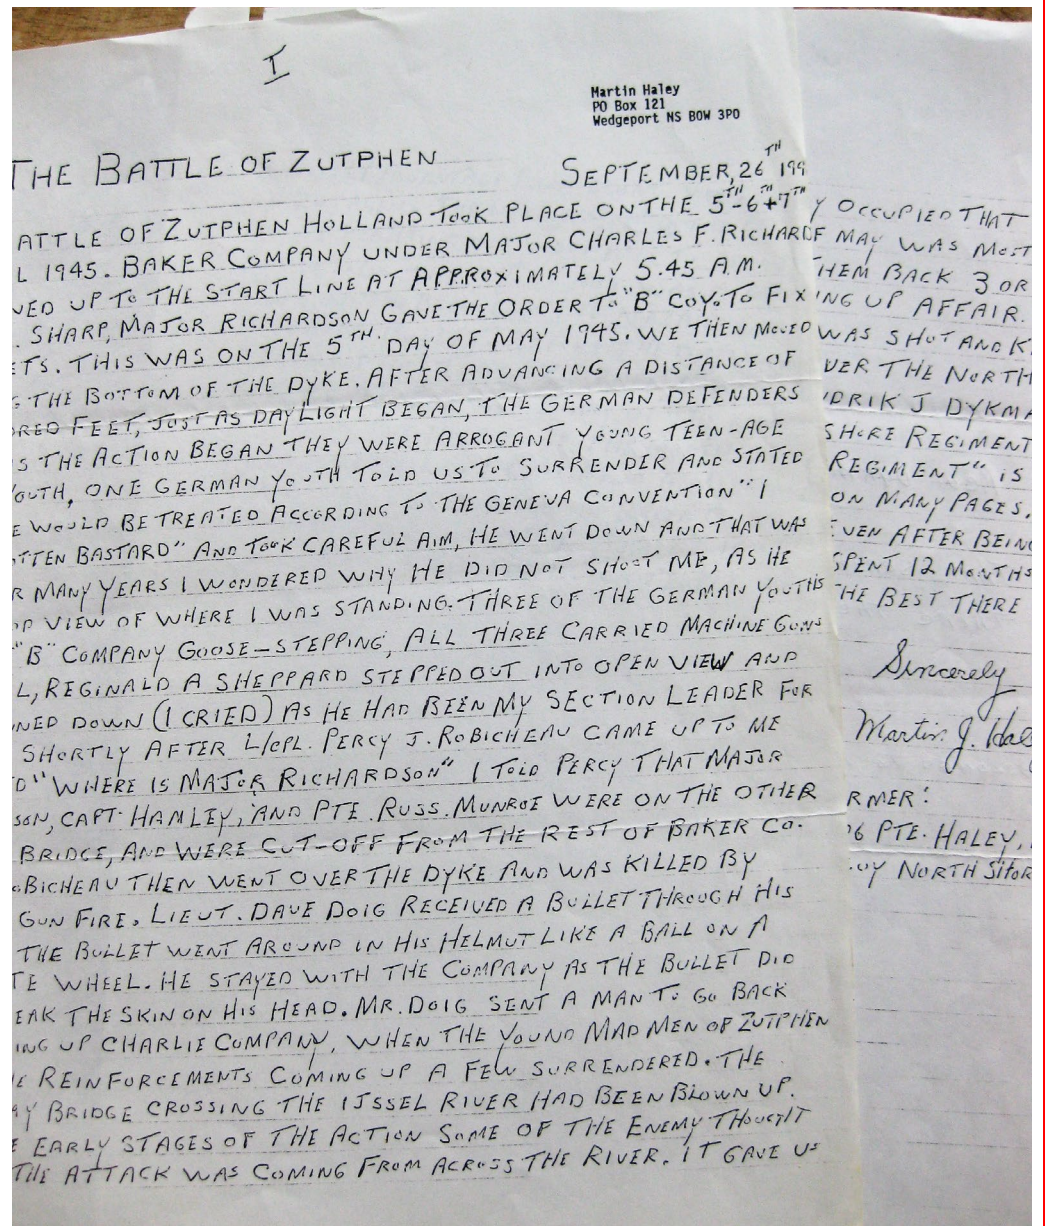 I
Martin Haley
PO Box 121
Wedgeport NS BOW 3PO
THE BATTLE OF ZUTPHEN
SEPTEMBER, 26TH 199
ATTLE OF ZUTPHEN HOLLAND TOOK PLACE ON THE 5TH-6TH+7TH
L 1945. BAKER COMPANY UNDER MAJOR CHARLES F. RICHARD
VED UP TO THE START LINE AT APPROXIMATELY 5.45 A.M.
. SHARP, MAJOR RICHARDSON GAVE THE ORDER TO "B" COY. TO FIX
ETS. THIS WAS ON THE 5TH DAY OF MAY 1945. WE THEN MOVED
G THE BOTTOM OF THE DYKE. AFTER ADVANCING A DISTANCE OF
DRED FEET, JUST AS DAYLIGHT BEGAN, THE GERMAN DEFENDERS
S THE ACTION BEGAN THEY WERE ARROGANT YOUNG TEEN-AGE
OUTH, ONE GERMAN YOUTH TOLD US TO SURRENDER AND STATED
E WOULD BE TREATED ACCORDING TO THE GENEVA CONVENTION" I
TTEN BASTARD" AND TOOK CAREFUL AIM, HE WENT DOWN AND THAT WAS
R MANY YEARS I WONDERED WHY HE DID NOT SHOOT ME, AS HE
VIEW OF WHERE I WAS STANDING. THREE OF THE GERMAN YOUTHS
"B" COMPANY GOOSE-STEPPING, ALL THREE CARRIED MACHINE GUNS
L, REGINALD A SHEPPARD STEPPED OUT INTO OPEN VIEW AND
NED DOWN (I CRIED) AS HE HAD BEEN MY SECTION LEADER FOR
SHORTLY AFTER L/CPL. PERCY J. ROBICHEAU CAME UP TO ME
D "WHERE IS MAJOR RICHARDSON" I TOLD PERCY THAT MAJOR
SON, CAPT. HAMLEY, AND PTE. RUSS. MUNROE WERE ON THE OTHER
BRIDGE, AND WERE CUT-OFF FROM THE REST OF BAKER CO.
OBICHEAU THEN WENT OVER THE DYKE AND WAS KILLED BY
GUN FIRE. LIEUT. DAVE DOIG RECEIVED A BULLET THROUGH HIS
THE BULLET WENT AROUND IN HIS HELMUT LIKE A BALL ON A
TE WHEEL. HE STAYED WITH THE COMPANY AS THE BULLET DID
EAK THE SKIN ON HIS HEAD. MR. DOIG SENT A MAN TO GO BACK
ING UP CHARLIE COMPANY, WHEN THE YOUND MAD MEN OF ZUTPHEN
E REINFORCEMENTS COMING UP A FEW SURRENDERED. THE
AY BRIDGE CROSSING THE IJSSEL RIVER HAD BEEN BLOWN UP.
E EARLY STAGES OF THE ACTION SOME OF THE ENEMY THOUGHT
THE ATTACK WAS COMING FROM ACROSS THE RIVER. IT GAVE US
Y OCCUPIED THAT
F MAY WAS MOST
HEM BACK 3 OR
ING UP AFFAIR.
WAS SHOT AND K
VER THE NORTH
DRIK J DYKMA
SHORE REGIMENT
REGIMENT" IS
ON MANY PAGES.
EVEN AFTER BEING
SPENT 12 MONTHS
THE BEST THERE
Sincerely
Martin J. Hal
RMER:
6 PTE. HALEY,
OY NORTH SHOR